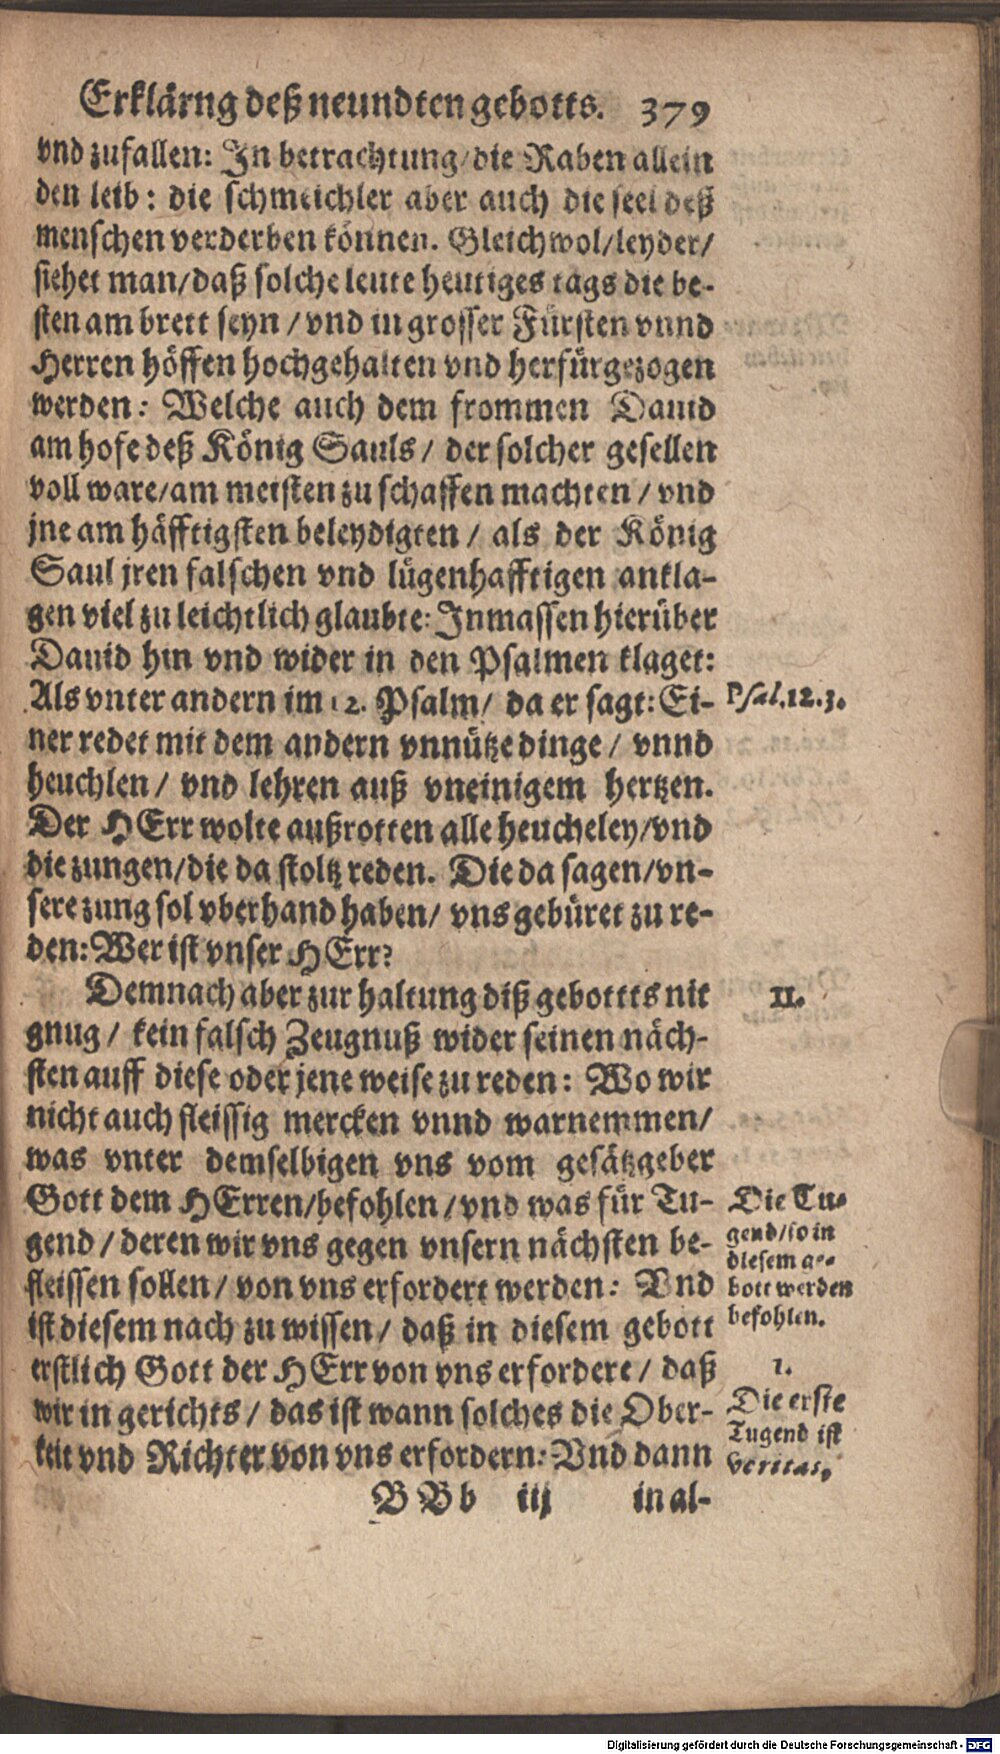 Erklärng deß neundten gebotts. 379
vnd zufallen: In betrachtung/die Raben allein
den leib: die schmeichler aber auch die seel deß
menschen verderben können. Gleichwol/leyder/
siehet man/daß solche leute heutiges tags die be-
sten am brett seyn/vnd in grosser Fürsten vnnd
Herren höffen hochgehalten vnd herfürgezogen
werden: Welche auch dem frommen Dauid
am hofe deß König Sauls/ der solcher gesellen
voll ware/am meisten zu schaffen machten/vnd
jne am häfftigsten beleydigten/ als der König
Saul jren falschen vnd lügenhafftigen ankla-
gen viel zu leichtlich glaubte: Inmassen hierüber
Dauid hin vnd wider in den Psalmen klaget:
Als vnter andern im 12. Psalm/ da er sagt: Ei-
Psal.12.3.
ner redet mit dem andern vnnütze dinge/ vnnd
heuchlen/ vnd lehren auß vneinigem hertzen.
Der HErr wolte außrotten alle heucheley/vnd
die zungen/die da stoltz reden. Die da sagen/vn-
sere zung sol vberhand haben/ vns gebüret zu re-
den: Wer ist vnser HErr?
Demnach aber zur haltung diß gebottts nit
II.
gnug/ kein falsch Zeugnuß wider seinen näch-
sten auff diese oder jene weise zu reden: Wo wir
nicht auch fleissig mercken vnnd warnemmen/
was vnter demselbigen vns vom gesätzgeber
Gott dem HErren/befohlen/vnd was für Tu-
gend/deren wir vns gegen vnsern nächsten be-
fleissen sollen/von vns erfordert werden: Vnd
ist diesem nach zu wissen/ daß in diesem gebott
Die Tu-
gend/so in
diesem ge-
bott werden
befohlen.
erstlich Gott der HErr von vns erfordere/ daß
wir in gerichts/ das ist wann solches die Ober-
keit vnd Richter von vns erfordern: Vnd dann
1.
Die erste
Tugend ist
Veritas,
BBb iij in al-
Digitalisierung gefördert durch die Deutsche Forschungsgemeinschaft - DFG